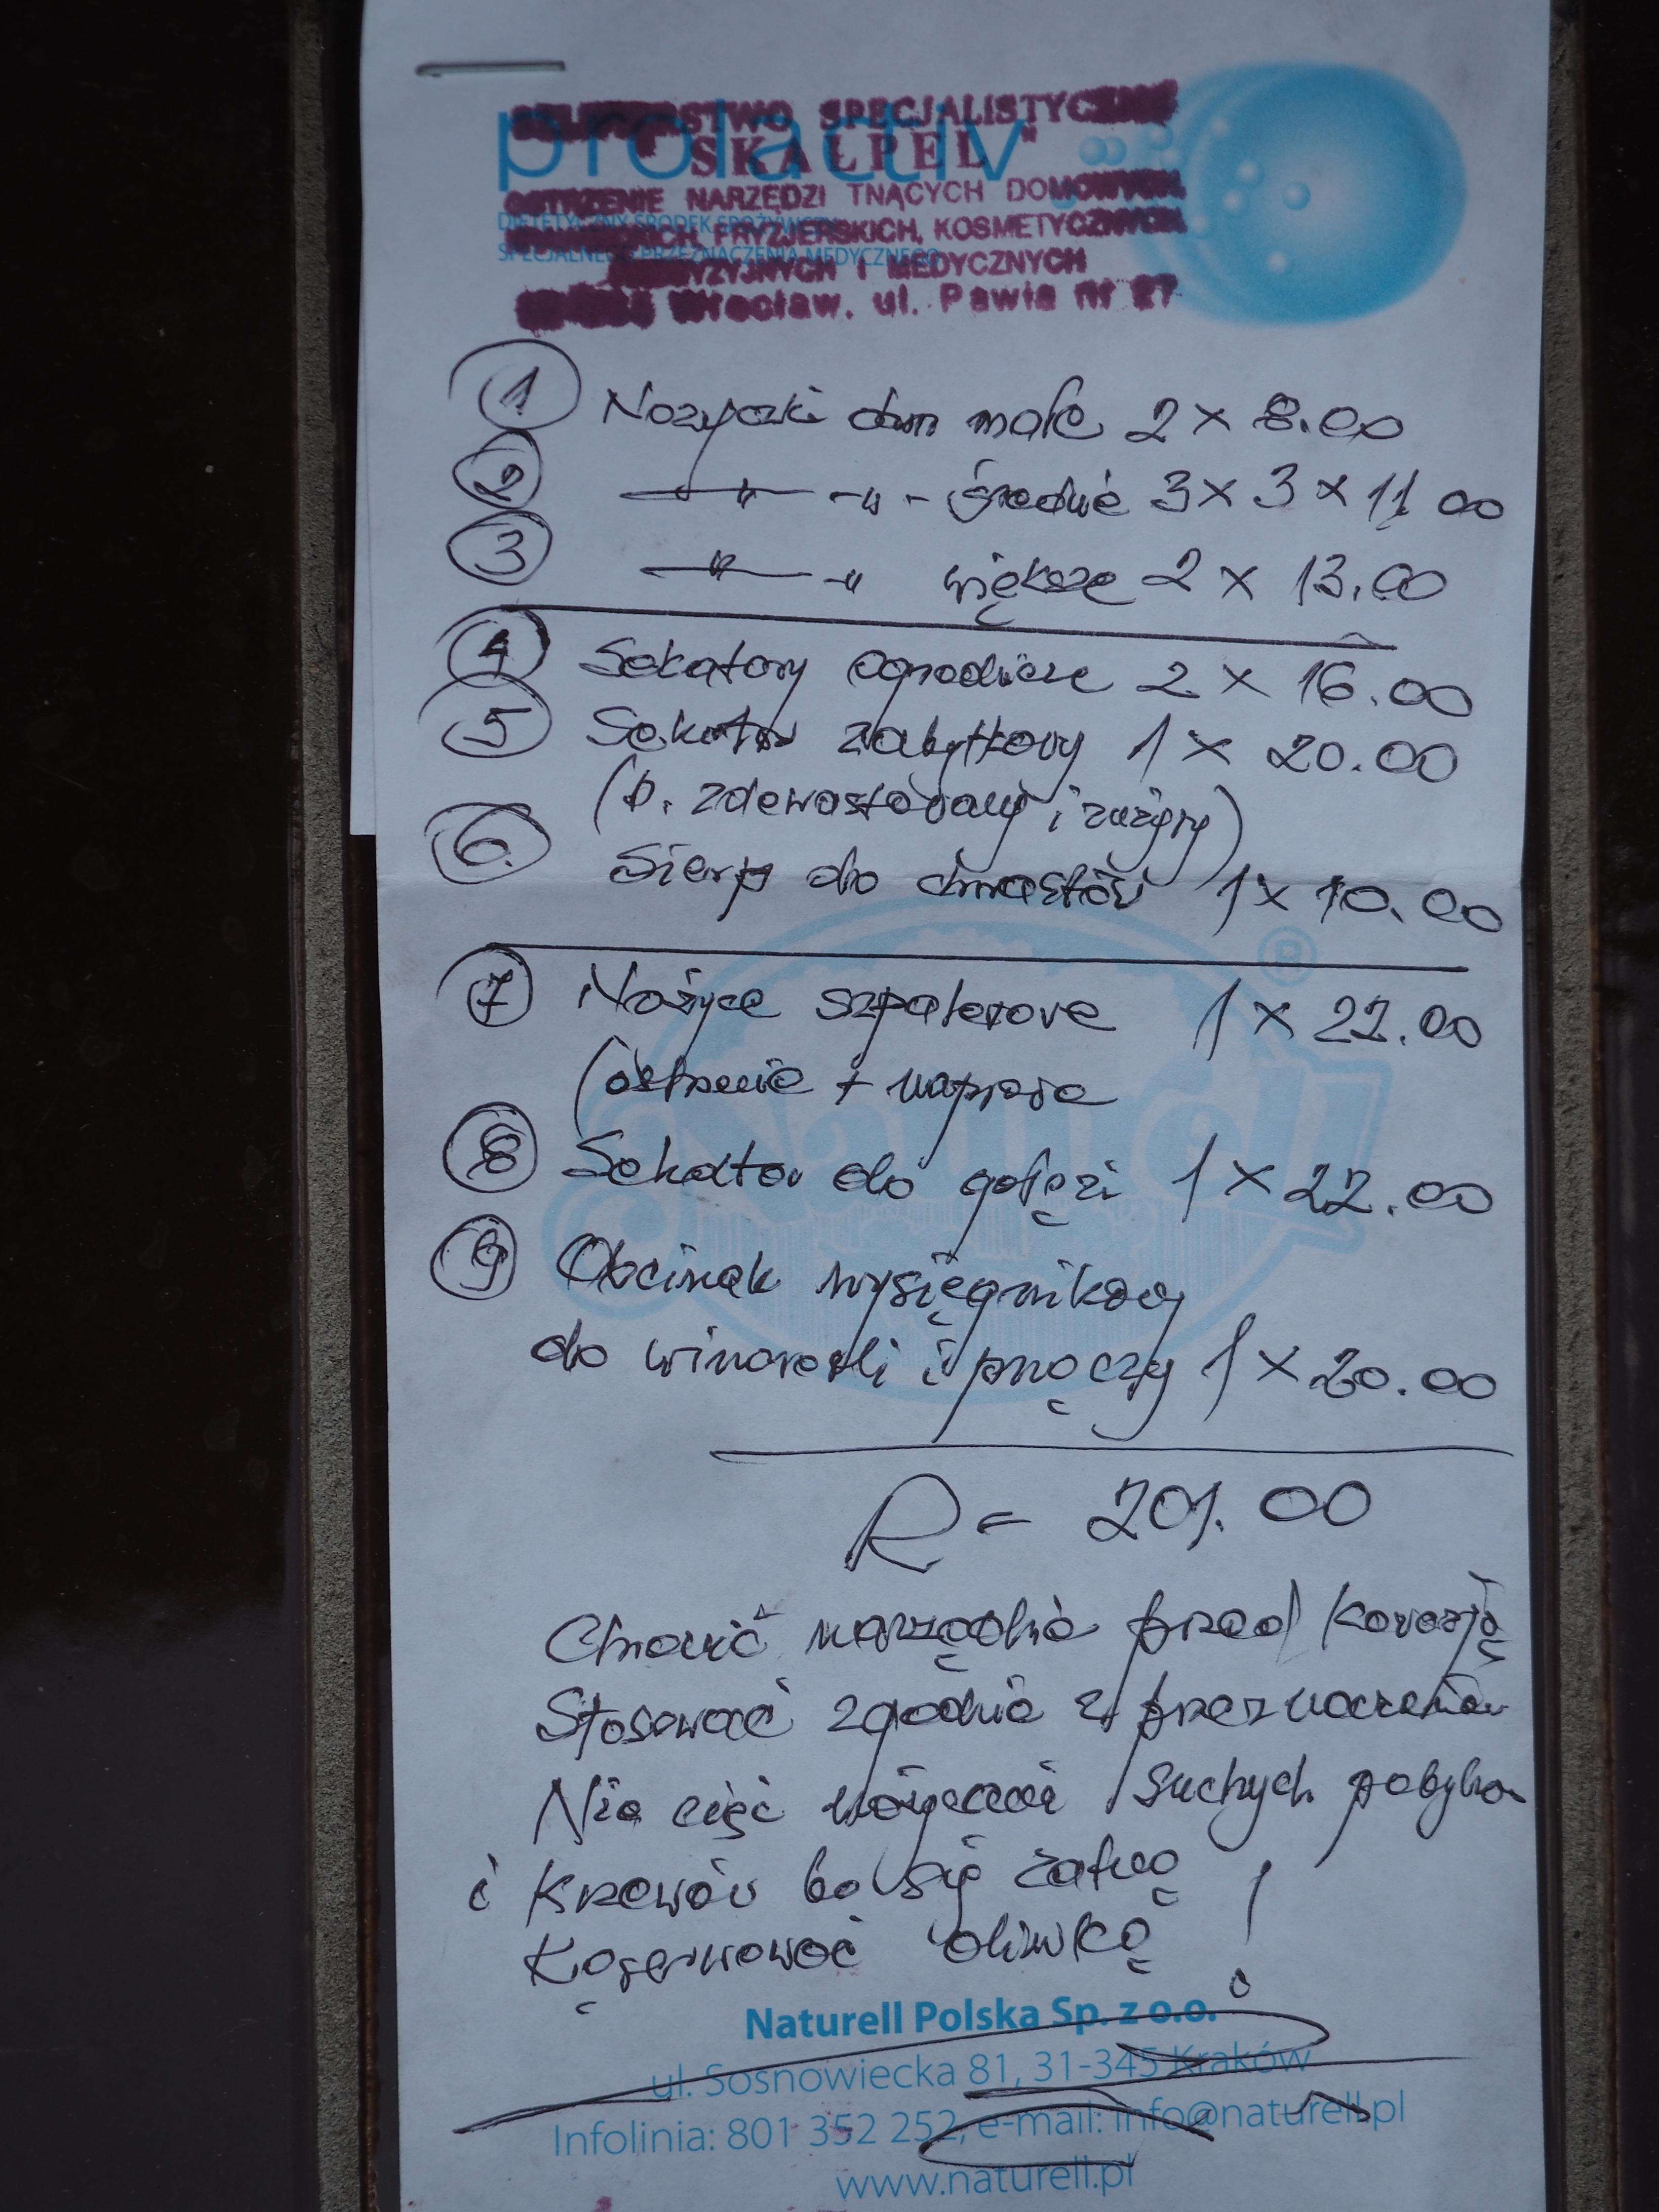 prolactiv
SZLIFIERSTWO SPECJALISTYCZNE
"SKALPEL"
OSTRZENIE NARZĘDZI TNĄCYCH DOMOWYCH,
FRYZJERSKICH, KOSMETYCZNYCH,
DIETETYCZNY ŚRODEK SPOŻYWCZY
SPECJALNEGO PRZEZNACZENIA MEDYCZNEGO
I MEDYCZNYCH
Wrocław, ul. Pawia nr 27
1 Nożyczki dom małe 2 x 8.00
2 -"- -"- średnie 3 x 3 x 11 00
3 -"- -"- większe 2 x 13.00
4 Sekatory ogrodnicze 2 x 16.00
5 Sekator zabytkowy 1 x 20.00
(b. zdewastowany i zużyty)
6. Sierp do chwastów 1 x 10.00
7 Nożyce szpalerowe 1 x 22.00
(ostrzenie + naprawa
8 Sekator do gałęzi 1 x 22.00
9 Obcinak wysięgnikowy
do winorośli i pnączy 1 x 20.00
R = 201.00
Chronić narzędzia przed korozją
Stosować zgodnie z przeznaczeniem
Nie ciąć nożycami suchych
i krzewów bo się
Konserwować oliwką !
Naturell Polska Sp. z o.o.
ul. Sosnowiecka 81, 31-345 Kraków
Infolinia: 801 352 252, e-mail: info@naturell.pl
www.naturell.pl
Naturell
®